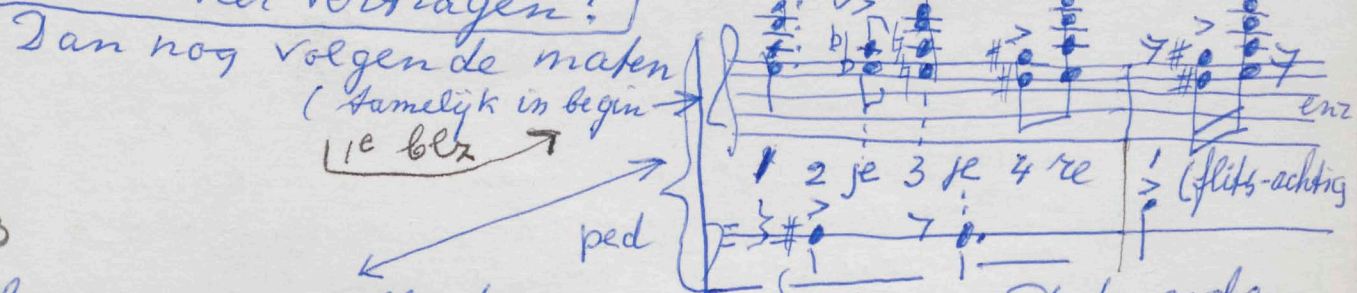 vertragen!
Dan nog volgende maten
(tamelijk in begin
1e blz
enz
1 2 je 3 je 4 re 1 (flits-achtig
ped